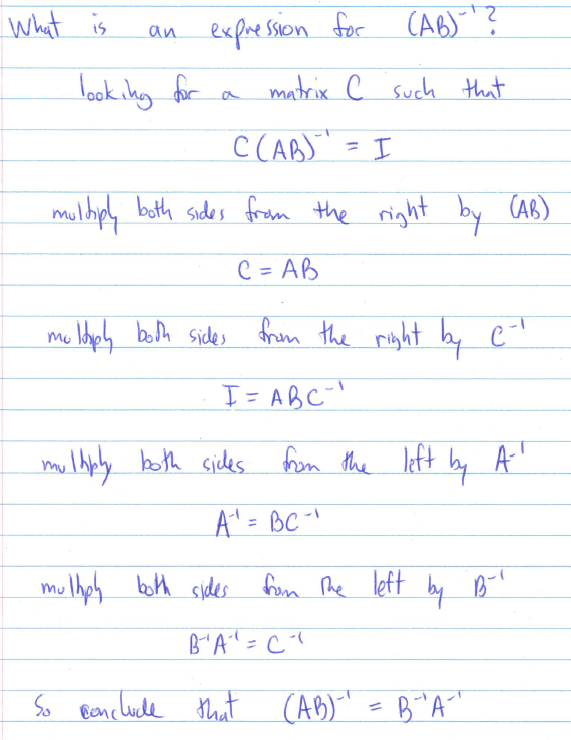 What is an expression for (AB)⁻¹?
looking for a matrix C such that
C(AB)⁻¹ = I
multiply both sides from the right by (AB)
C = AB
multiply both sides from the right by C⁻¹
I = ABC⁻¹
multiply both sides from the left by A⁻¹
A⁻¹ = BC⁻¹
multiply both sides from the left by B⁻¹
B⁻¹A⁻¹ = C⁻¹
So conclude that (AB)⁻¹ = B⁻¹A⁻¹